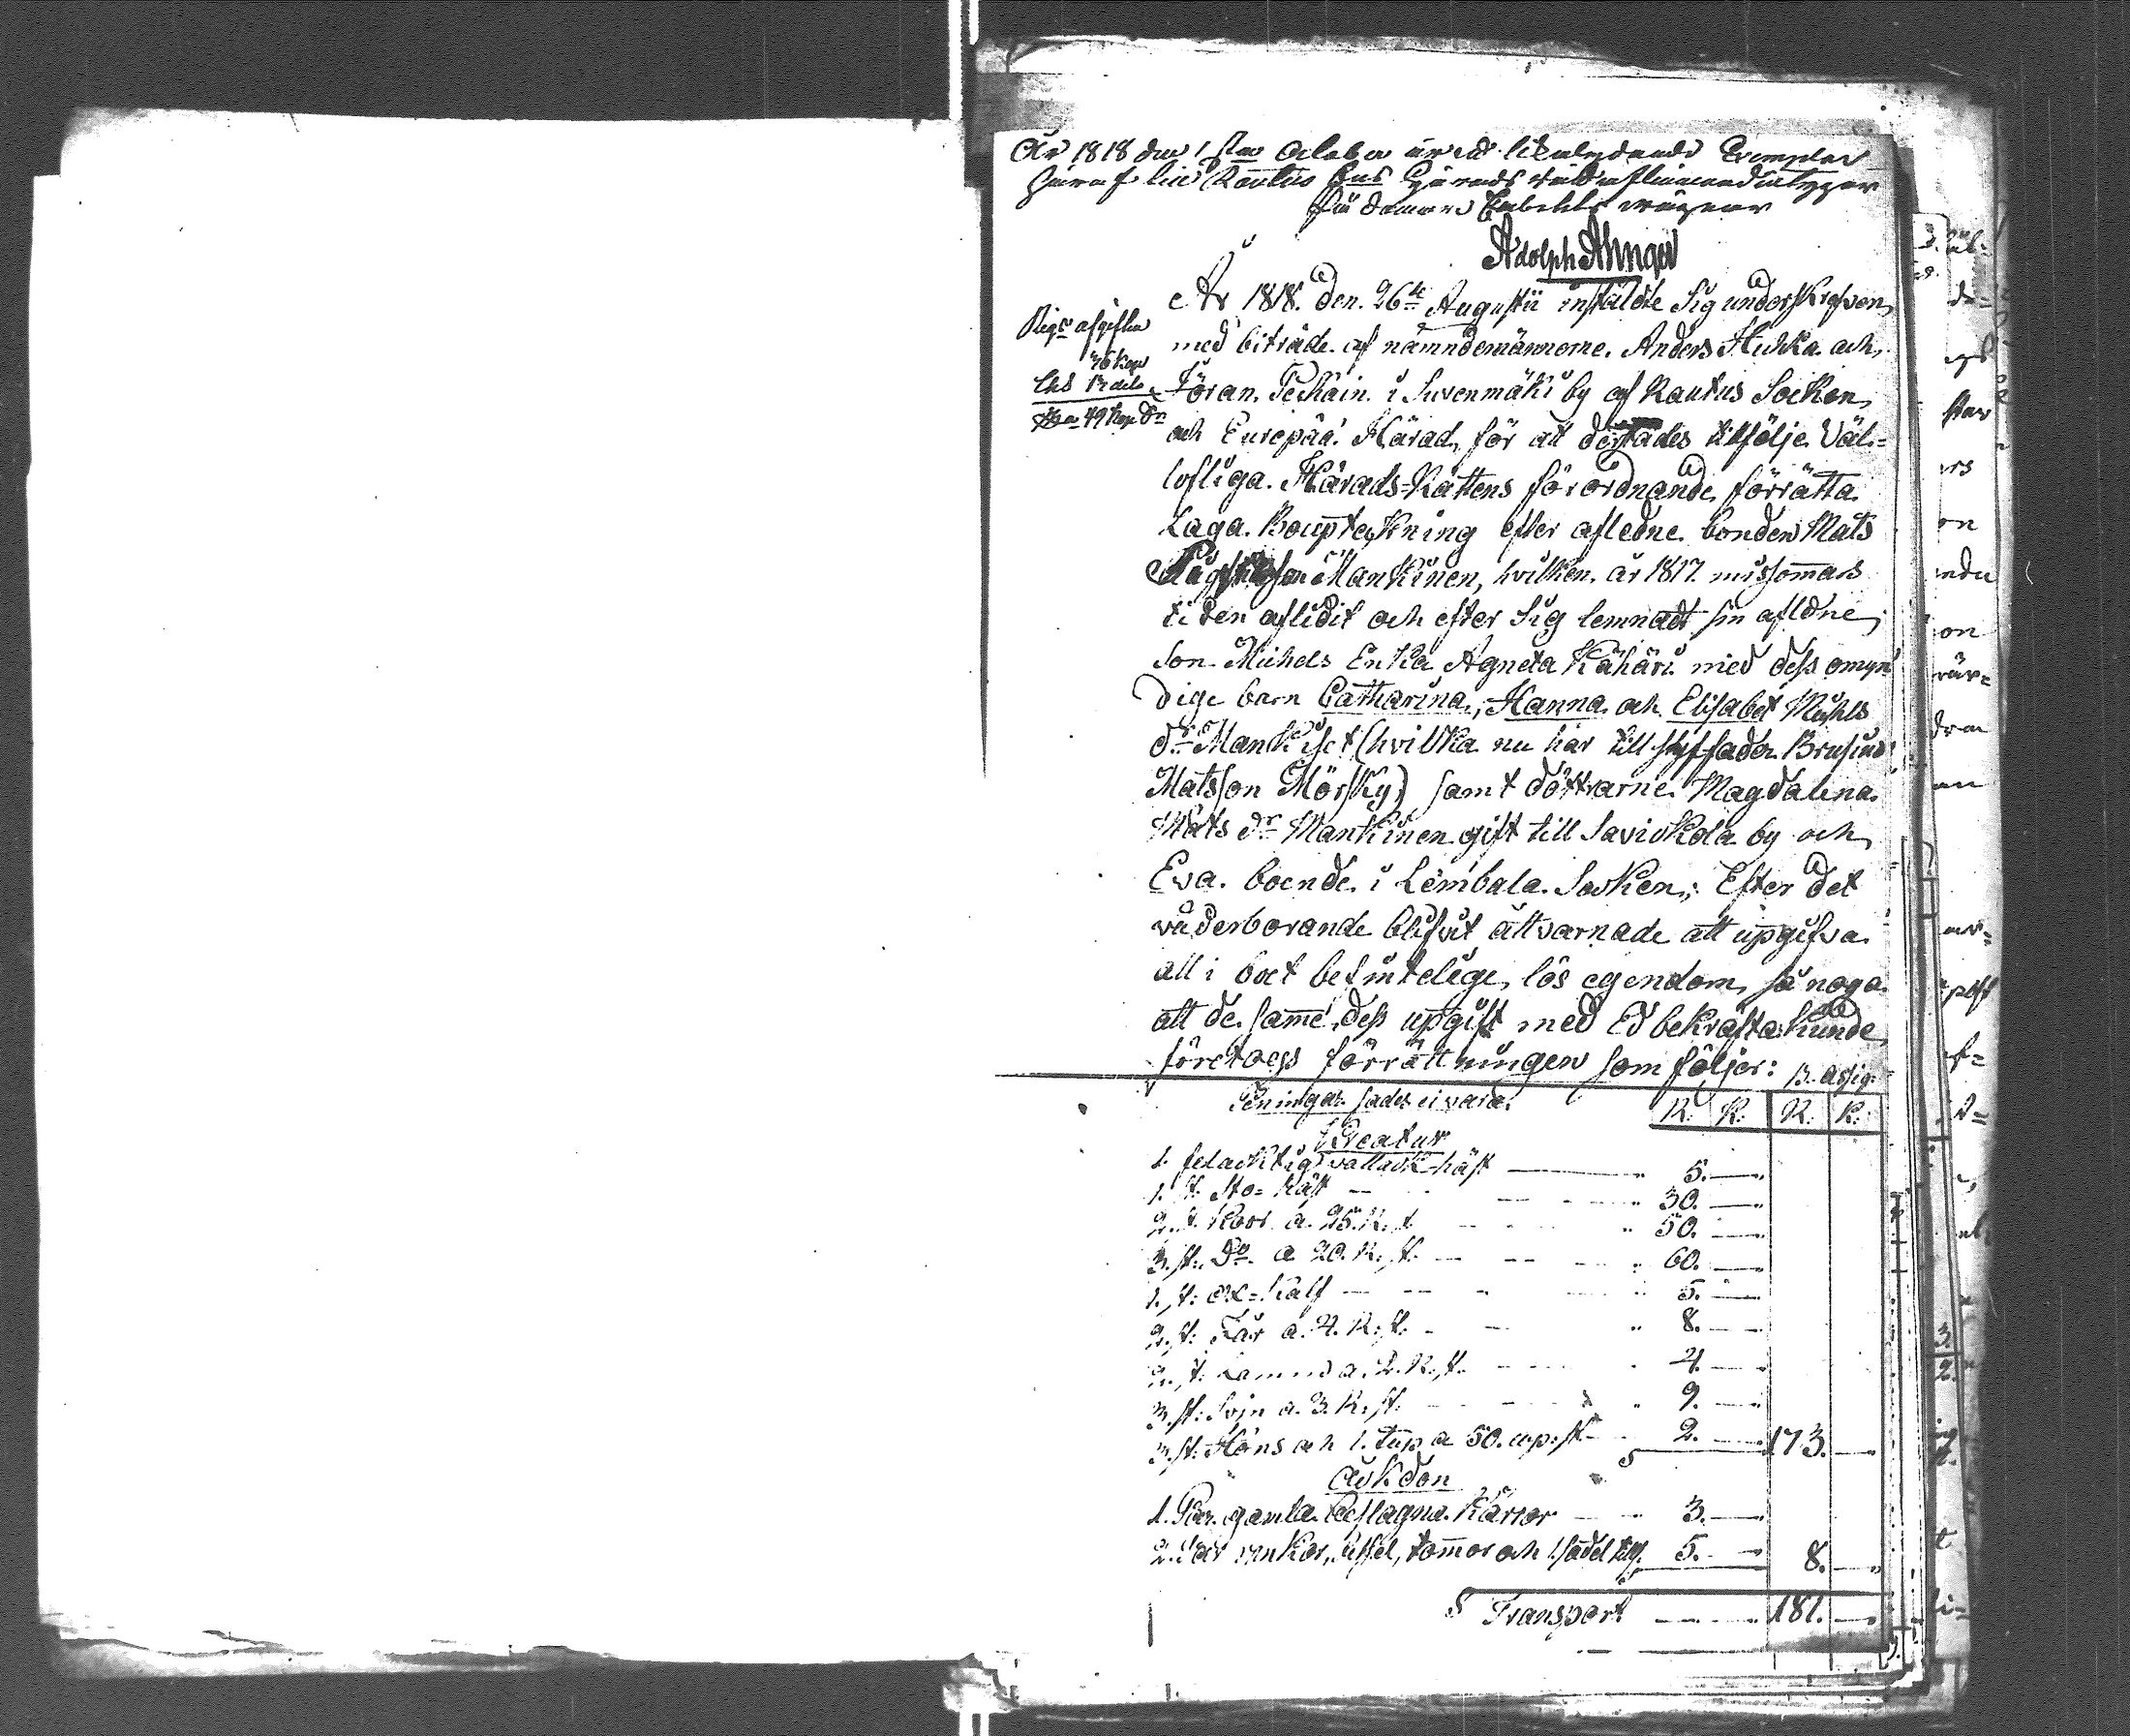 År 1818 den 1sta October är ett likalydande Exemplar
häraf
för Domare Embetets vägnar
Adolph Ahnger
År 1818. den. 26te Augustii instälde Sig underskrefven,
med biträde. af nämndemännerne. Anders Huhka. och,
Jöran. Pechäin. i Suvenmäki by af Rautus Socken,
och Europää. Härad, för att dertädes tillfölje Väl-
lofliga. Härads-Rättens förordnande, förrätta.
Laga. Bouptekning efter afledne. bonden Mats
Mankinen, hvilken. år 1817. missomars
tiden aflidit och efter Sig lemnadt sin afldne,
Son. Michels Enka Agneta Kähäri. med dess omyn
dige barn Catharina, Hanna. och Elisabet Michels
dr Mankiset (hvilka nu har till styffader Brusius
Matsson Mörsky) samt döttrarne. Magdalena.
Mats dr Mankinen gift till Saviokola by och,
Eva. boende. i Lembala. Socken,; Efter det
våderborande blifvit åttvarnade att upgifva.
all i boet befintelige, lös egendom, så noga.
att de. samme. dess upgift med Ed bekräfta. kunde,
företogs förrättningen som följer: B. Assig:
Peningar. sades ei vara. R: K: R: K:
Creatur
1. felacktig vallack häst 5.
1. st: Sto= häst 30.
2. st. Koor. a. 25. R. st 50.
3. st:. Do. a 20. R:. st. 60.
1. st: ox= kalf 5.
2. st: Får a. 4. R: st. 8.
2. st: Lamm a. 2. R. st. 4.
3. st: Svin a. 3. R. st. 9.
3. st: Höns och 1. tup a 50. cop: st 2. 173.
Åkdon
1. Par. gamla. beslagna. Kärror 3.
5. 8.
S Transport 181.